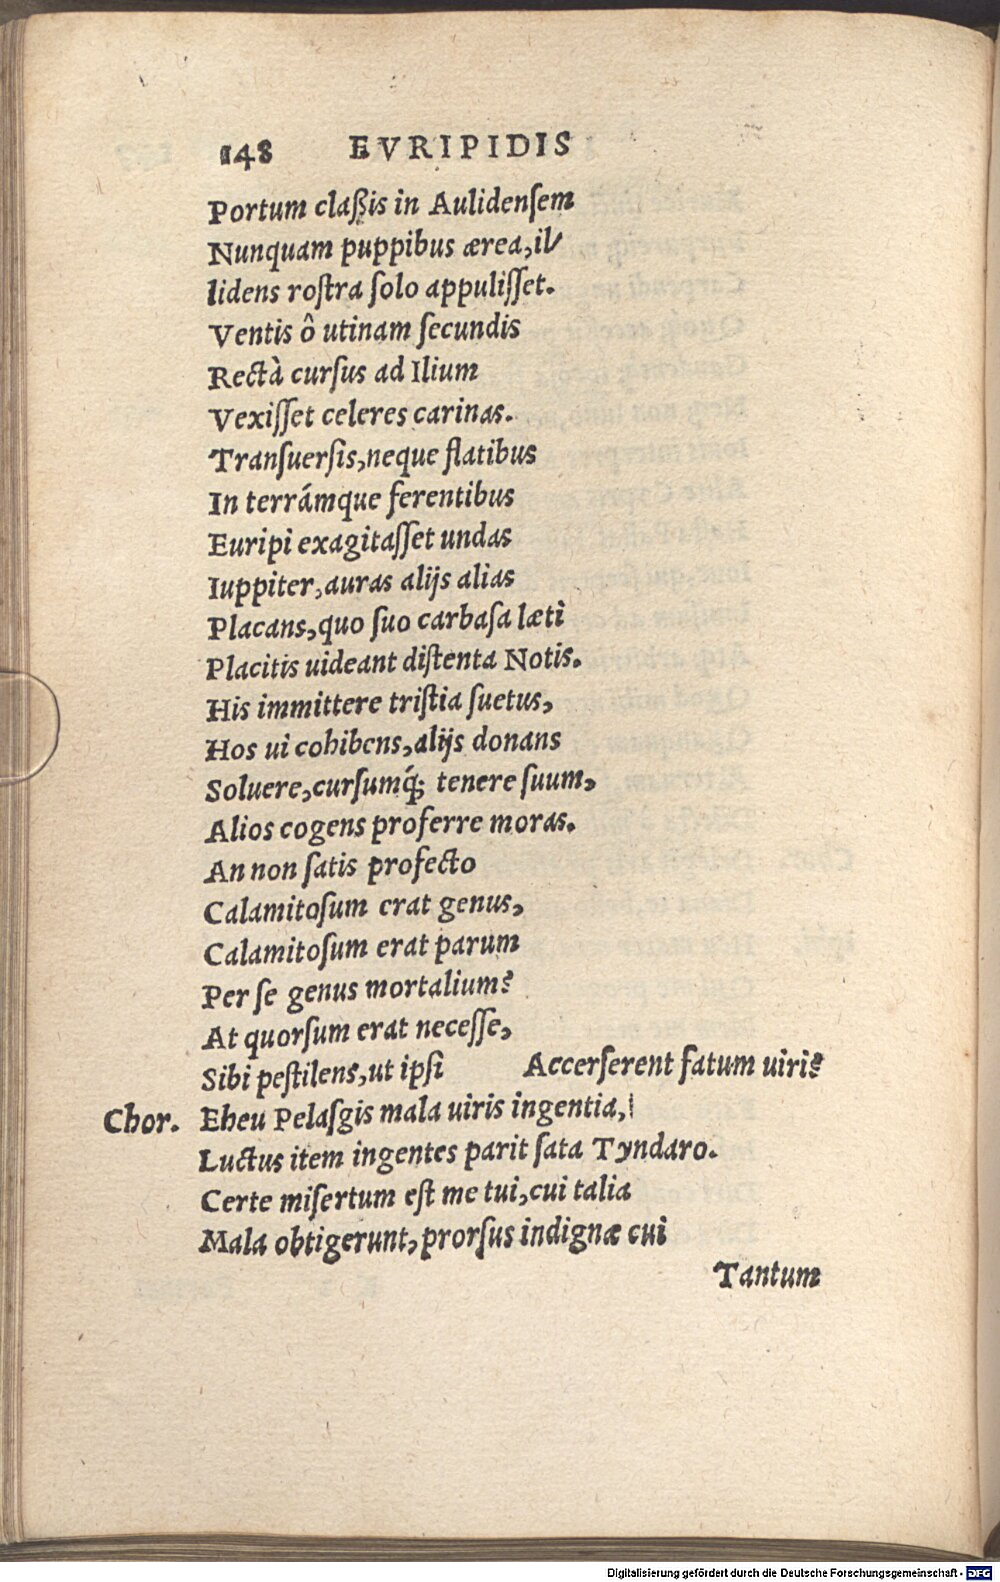 148 EVRIPIDIS
Portum claßis in Aulidensem
Nunquam puppibus ærea, il⸗
lidens rostra solo appulisset.
Ventis ô utinam secundis
Rectà cursus ad Ilium
Vexisset celeres carinas.
Transuersis, neque flatibus
In terrámque ferentibus
Euripi exagitasset undas
Iuppiter, auras alijs alias
Placans, quo suo carbasa læti
Placitis uideant distenta Notis.
His immittere tristia suetus,
Hos ui cohibens, alijs donans
Soluere, cursumq́; tenere suum,
Alios cogens proferre moras.
An non satis profecto
Calamitosum erat genus,
Calamitosum erat parum
Per se genus mortalium?
At quorsum erat necesse,
Sibi pestilens, ut ipsi Accerserent fatum uiri?
Chor. Eheu Pelasgis mala uiris ingentia,
Luctus item ingentes parit sata Tyndaro.
Certe misertum est me tui, cui talia
Mala obtigerunt, prorsus indignæ cui
Tantum
Digitalisierung gefördert durch die Deutsche Forschungsgemeinschaft - DFG